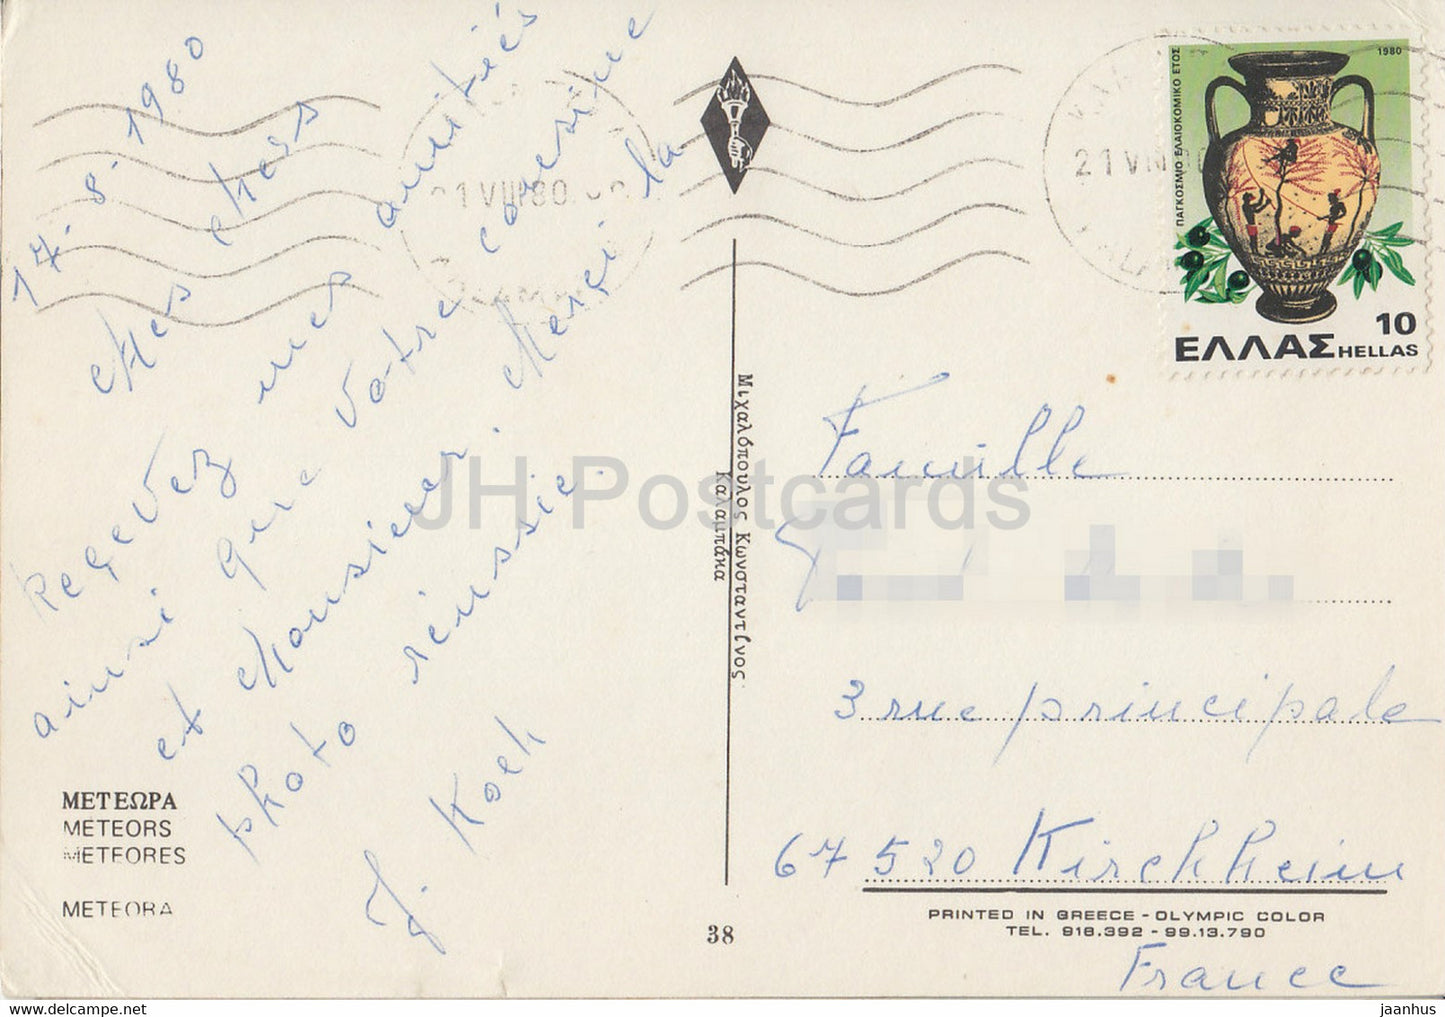 17.8.1980
Mes chers
Recevez mes amitiés
ainsi que votre cousine
et Monsieur. Merci la
photo réussie
J. Koch
ΜΕΤΕΩΡΑ
METEORS
METEORES
METEORA
38
Μιχαλόπουλος Κωνσταντίνος
Καλαμπάκα
21 VIII 80
21 VII
ΠΑΓΚΟΣΜΙΟ ΕΛΑΙΟΚΟΜΙΚΟ ΕΤΟΣ
1980
10
ΕΛΛΑΣ HELLAS
Famille
3 rue principale
67520 Kirchheim
PRINTED IN GREECE - OLYMPIC COLOR
TEL. 918.392 - 99.13.790
France
JH Postcards
www.ebay.com/str/jhpostcards
jaanhus